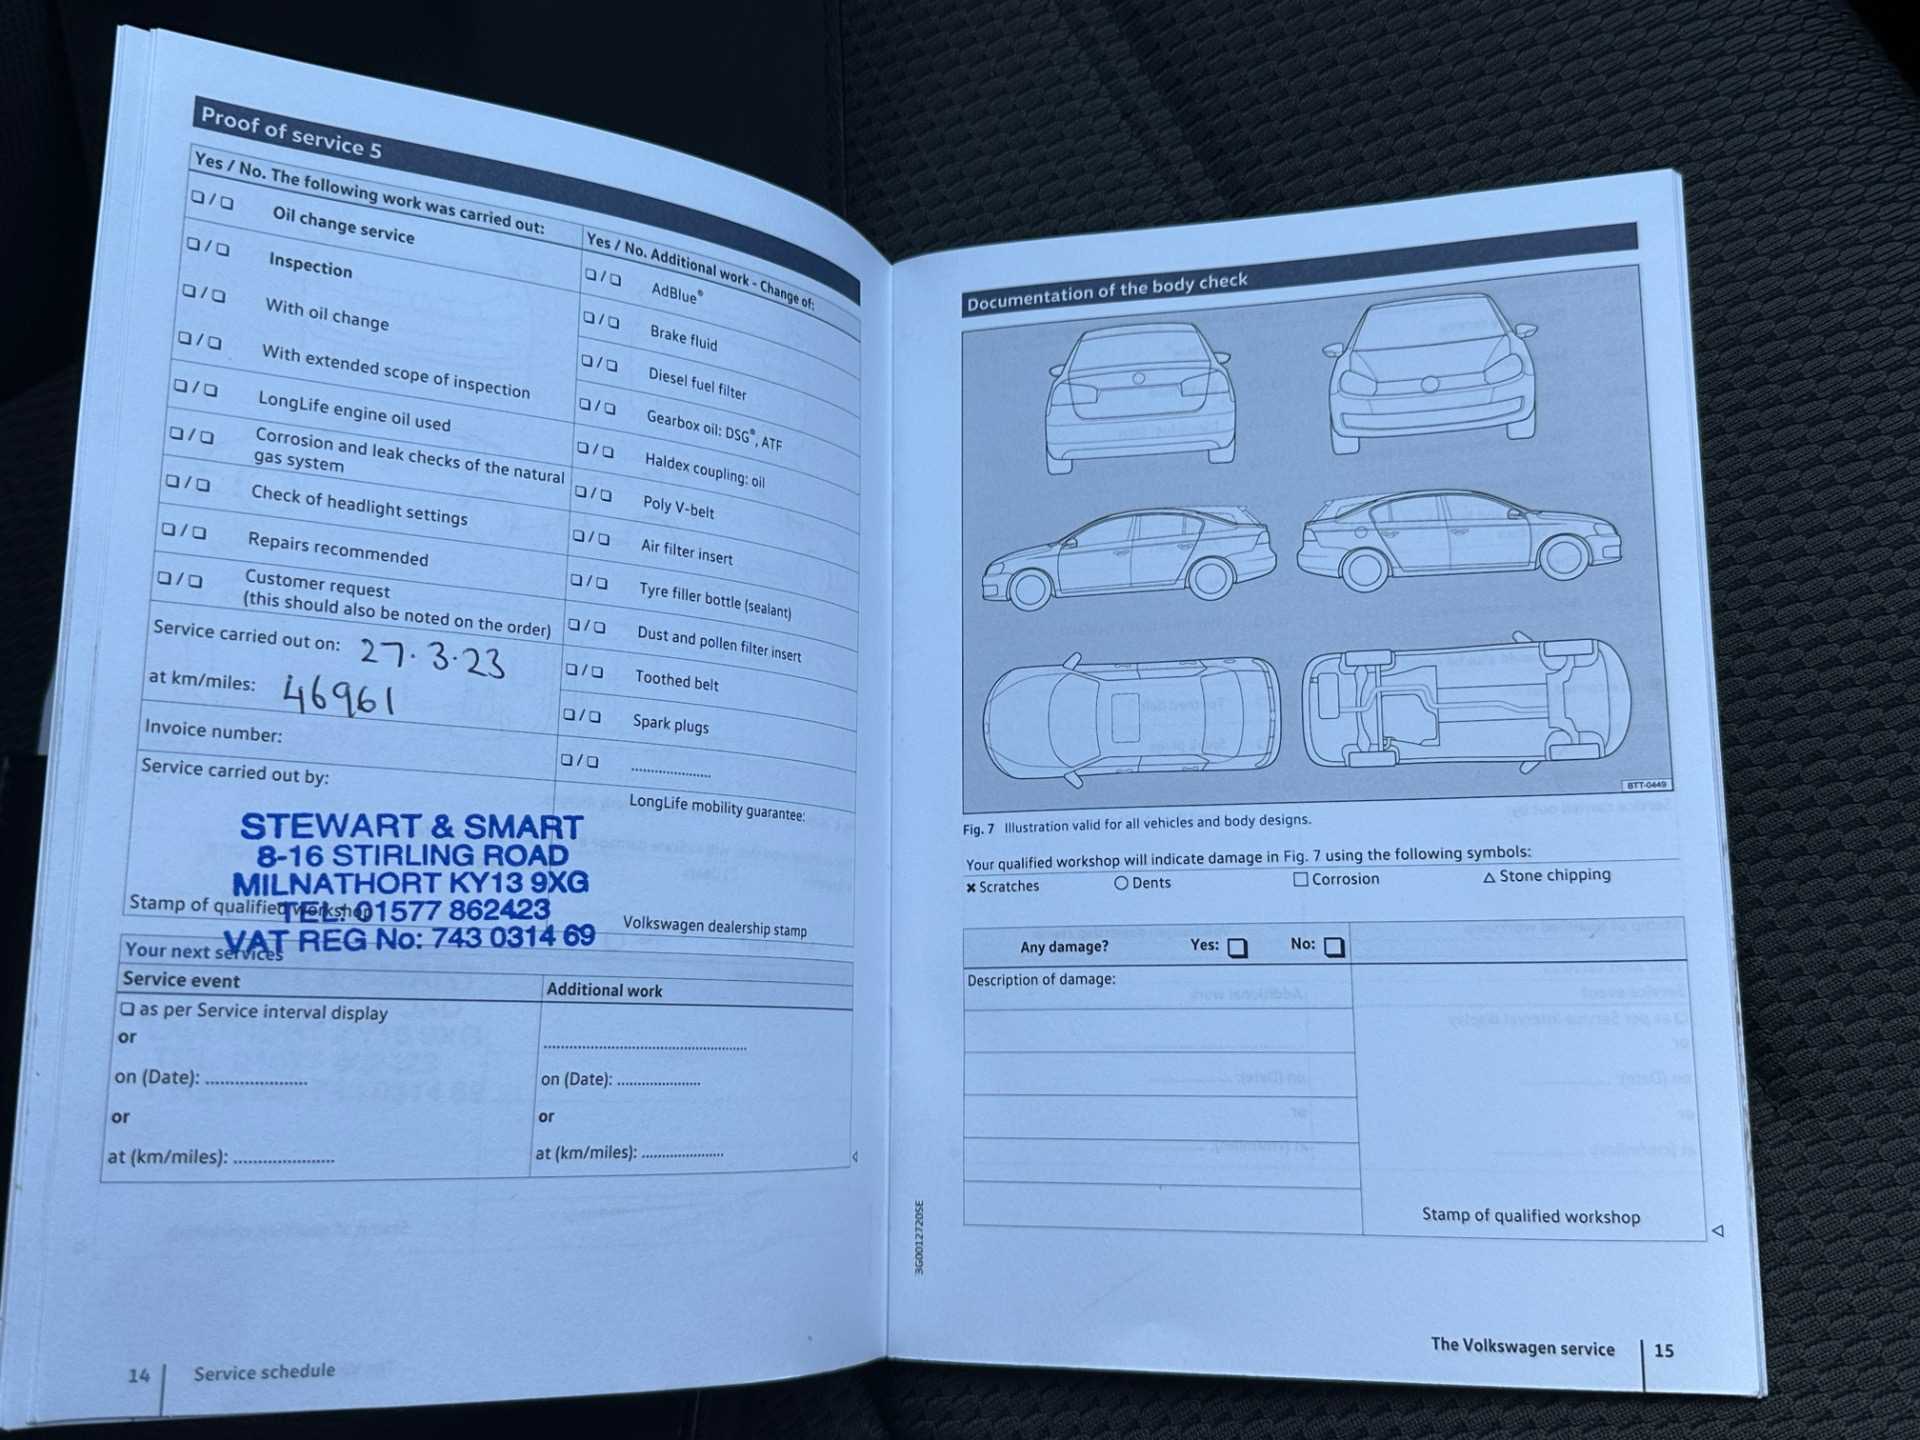 Proof of service 5
Yes / No. The following work was carried out:
❏ / ❏ Oil change service
❏ / ❏ Inspection
❏ / ❏ With oil change
❏ / ❏ With extended scope of inspection
❏ / ❏ LongLife engine oil used
❏ / ❏ Corrosion and leak checks of the natural
gas system
❏ / ❏ Check of headlight settings
❏ / ❏ Repairs recommended
❏ / ❏ Customer request
(this should also be noted on the order)
Service carried out on: 27.3.23
at km/miles: 46961
Invoice number:
Service carried out by:
STEWART & SMART
8-16 STIRLING ROAD
MILNATHORT KY13 9XG
TEL: 01577 862423
VAT REG No: 743 0314 69
Stamp of qualified workshop
Yes / No. Additional work - Change of:
❏ / ❏ AdBlue®
❏ / ❏ Brake fluid
❏ / ❏ Diesel fuel filter
❏ / ❏ Gearbox oil: DSG®, ATF
❏ / ❏ Haldex coupling: oil
❏ / ❏ Poly V-belt
❏ / ❏ Air filter insert
❏ / ❏ Tyre filler bottle (sealant)
❏ / ❏ Dust and pollen filter insert
❏ / ❏ Toothed belt
❏ / ❏ Spark plugs
❏ / ❏ ....................
LongLife mobility guarantee:
Volkswagen dealership stamp
Your next services
Service event
❏ as per Service interval display
or
on (Date): .........................
or
at (km/miles): .........................
Additional work
..................................................
on (Date): ....................
or
at (km/miles): ....................
14 Service schedule
Documentation of the body check
BTT-0449
Fig. 7 Illustration valid for all vehicles and body designs.
Your qualified workshop will indicate damage in Fig. 7 using the following symbols:
✖ Scratches ○ Dents □ Corrosion △ Stone chipping
Any damage? Yes: ❏ No: ❏
Description of damage:
Stamp of qualified workshop
3G0012720SE
The Volkswagen service 15